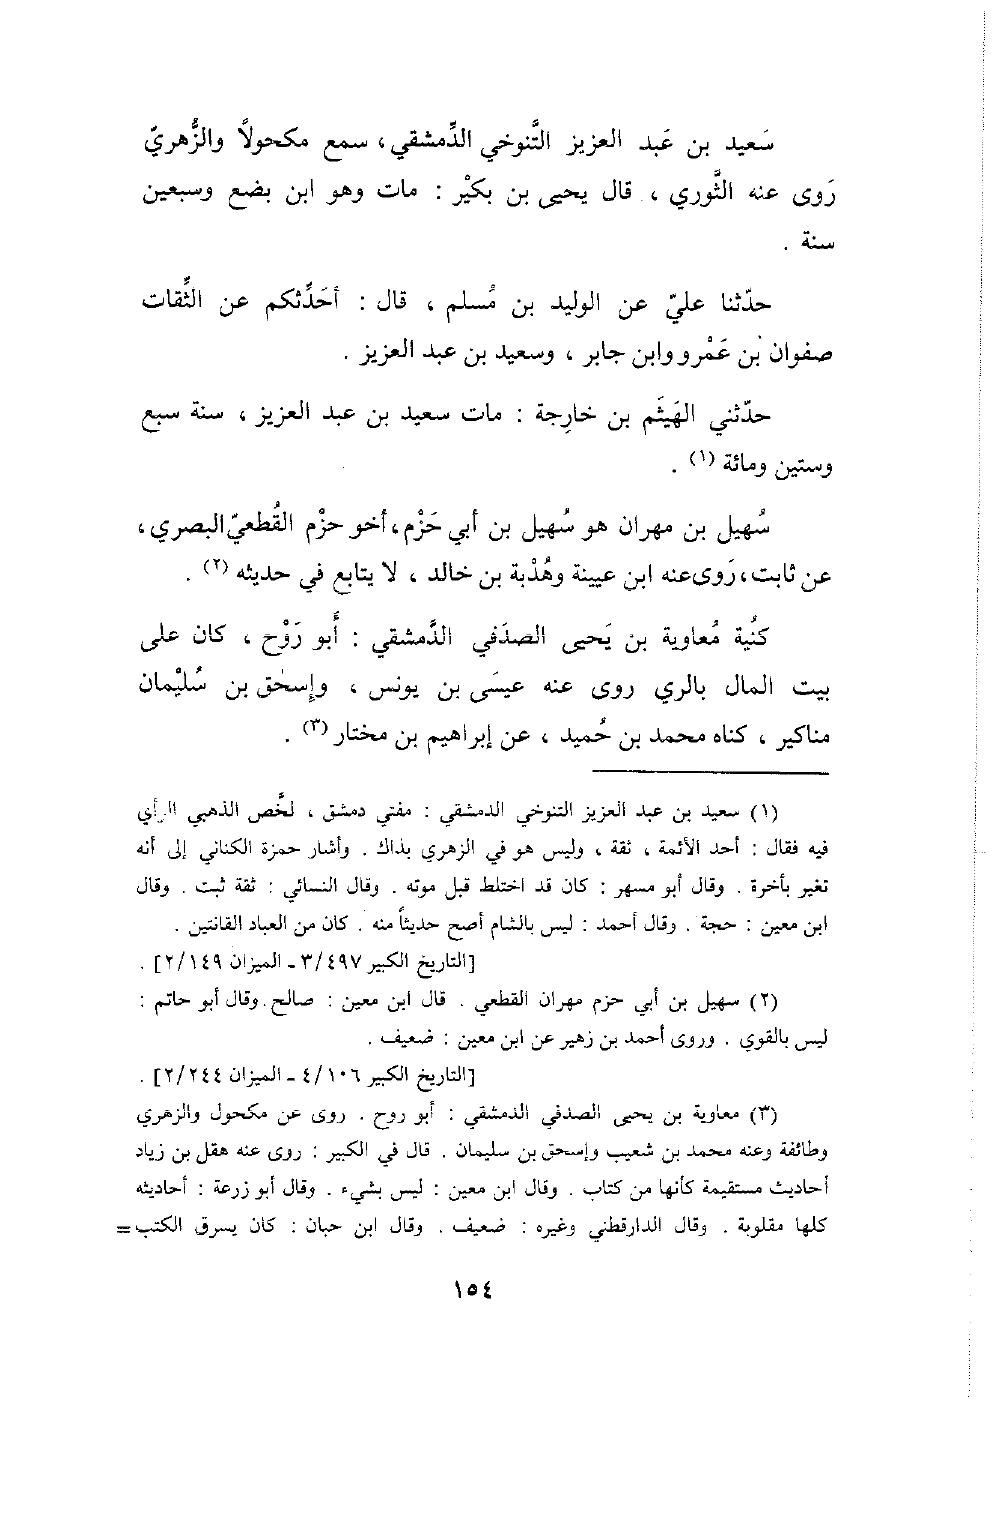 سَعيد بن عَبد العزيز التَّنوخي الدِّمشقي، سمع مكحولاً والزُّهريّ
رَوى عنه الثَّوري ، قال يحيى بن بكيْر : مات وهو ابن بضع وسبعين
سنة .
حدّثنا عليّ عن الوليد بن مُسلم ، قال : أحَدِّثكم عن الثِّقات
صفوان بْن عَمْرو وابن جابر ، وسعيد بن عبد العزيز .
حدّثني الهَيثَم بن خارِجة : مات سعيد بن عبد العزيز ، سنة سبع
وستين ومائة (١) .
سُهيل بن مهران هو سُهيل بن أبي حَزْم، أخو حزْم القُطعيّ البصري،
عن ثابت، رَوى عنه ابن عيينة وهُدْبة بن خالد ، لا يتابع في حديثه (٢) .
كنُية مُعاوية بن يَحيى الصدَفي الدِّمشقي : أَبو رَوْح ، كان على
بيت المال بالري روى عنه عيسَى بن يونس ، وإسحٰق بن سُليْمان
مناكير ، كناه محمد بن حُميد ، عن إبراهيم بن مختار (٣) .
(١) سعيد بن عبد العزيز التنوخي الدمشقي : مفتي دمشق ، لخَّص الذهبي الرأي
فيه فقال : أحد الأئمة ، ثقة ، وليس هو في الزهري بذاك . وأشار حمزة الكناني إلى أنه
تغير بأخرة . وقال أبو مسهر : كان قد اختلط قبل موته . وقال النسائي : ثقة ثبت . وقال
ابن معين : حجة . وقال أحمد : ليس بالشام أصح حديثاً منه . كان من العباد القانتين .
[التاريخ الكبير ٣/٤٩٧ ـ الميزان ٢/١٤٩] .
(٢) سهيل بن أبي حزم مهران القطعي . قال ابن معين : صالح . وقال أبو حاتم :
ليس بالقوي . وروى أحمد بن زهير عن ابن معين : ضعيف .
[التاريخ الكبير ٤/١٠٦ ـ الميزان ٢/٢٤٤] .
(٣) معاوية بن يحيى الصدفي الدمشقي : أبو روح . روى عن مكحول والزهري
وطائفة وعنه محمد بن شعيب وإسحق بن سليمان . قال في الكبير : روى عنه هقل بن زياد
أحاديث مستقيمة كأنها من كتاب . وقال ابن معين : ليس بشيء . وقال أبو زرعة : أحاديثه
كلها مقلوبة . وقال الدارقطني وغيره : ضعيف . وقال ابن حبان : كان يسرق الكتب =
١٥٤